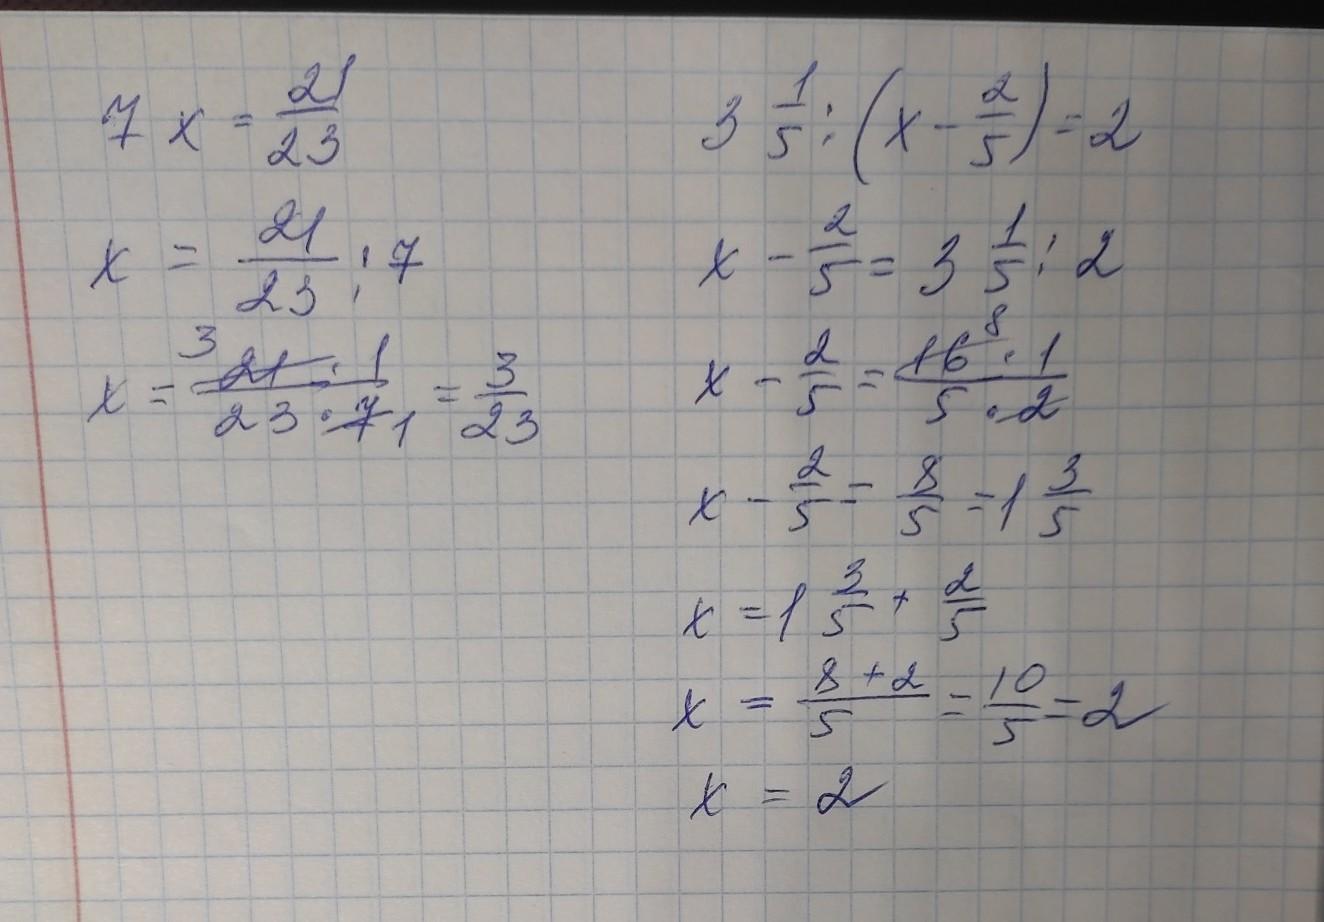 7 x = 21/23
x = 21/23 : 7
x = 3 21 · 1 / 23 · 7 1 = 3/23
3 1/5 : (x - 2/5) = 2
x - 2/5 = 3 1/5 : 2
x - 2/5 = 16 8 · 1 / 5 · 2
x - 2/5 = 8/5 = 1 3/5
x = 1 3/5 + 2/5
x = 8 + 2 / 5 = 10/5 = 2
x = 2